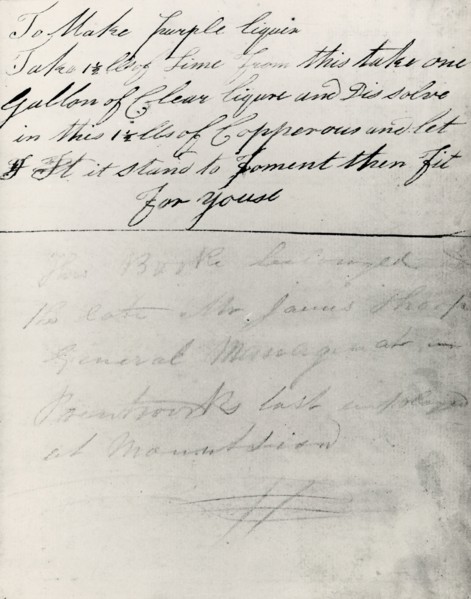 To Make purple liquir
Take 1½ lbs of Lime from this take one
Gallon of Clear liqure and Dissolve
in this 1½ lbs of Copperous and let
It it stand to foment then fit
for youse
This Book belonged
the late Mr. James
General Manager at
Printworks last employed
at Mount Sion